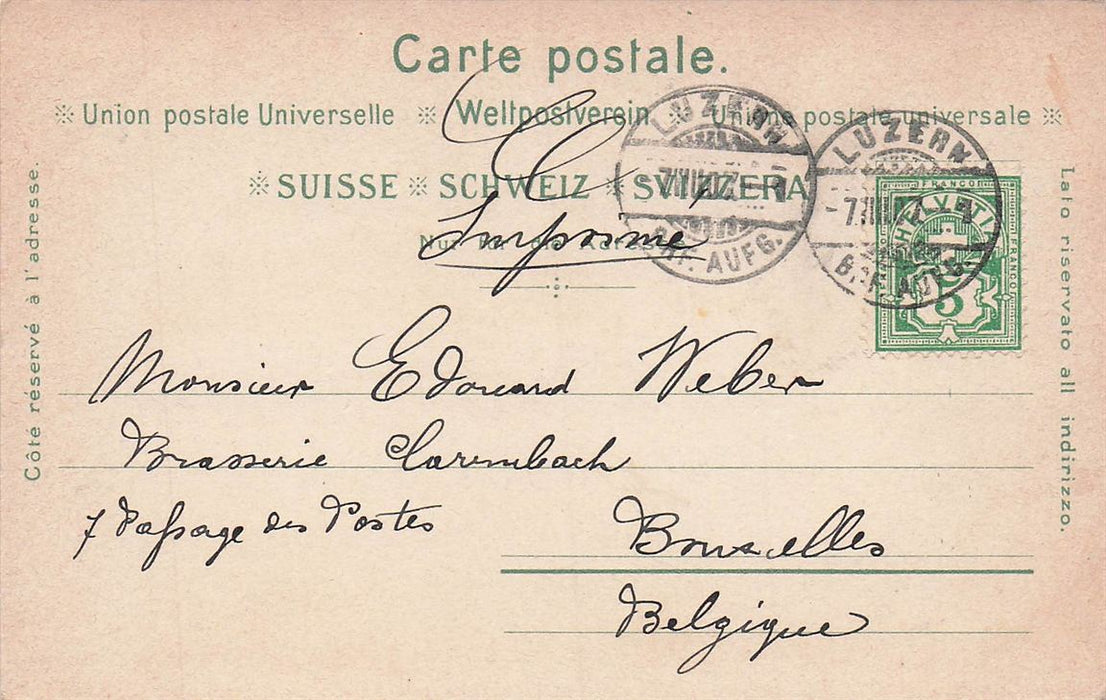 Carte postale.
※ Union postale Universelle ※ Weltpostverein ※ Unione postale universale ※
※ SUISSE ※ SCHWEIZ ※ SVIZZERA
Nur für die Adresse
Imprimé
LUZERN
BRF. AUFG.
LUZERN
BRF. AUFG.
FRANCO
HELVETIA
FRANCO
5
Côté réservé à l'adresse.
Lato riservato all indirizzo.
Monsieur Edouard Weber
Brasserie Clarembach
7 Passage des Postes
Bruxelles
Belgique